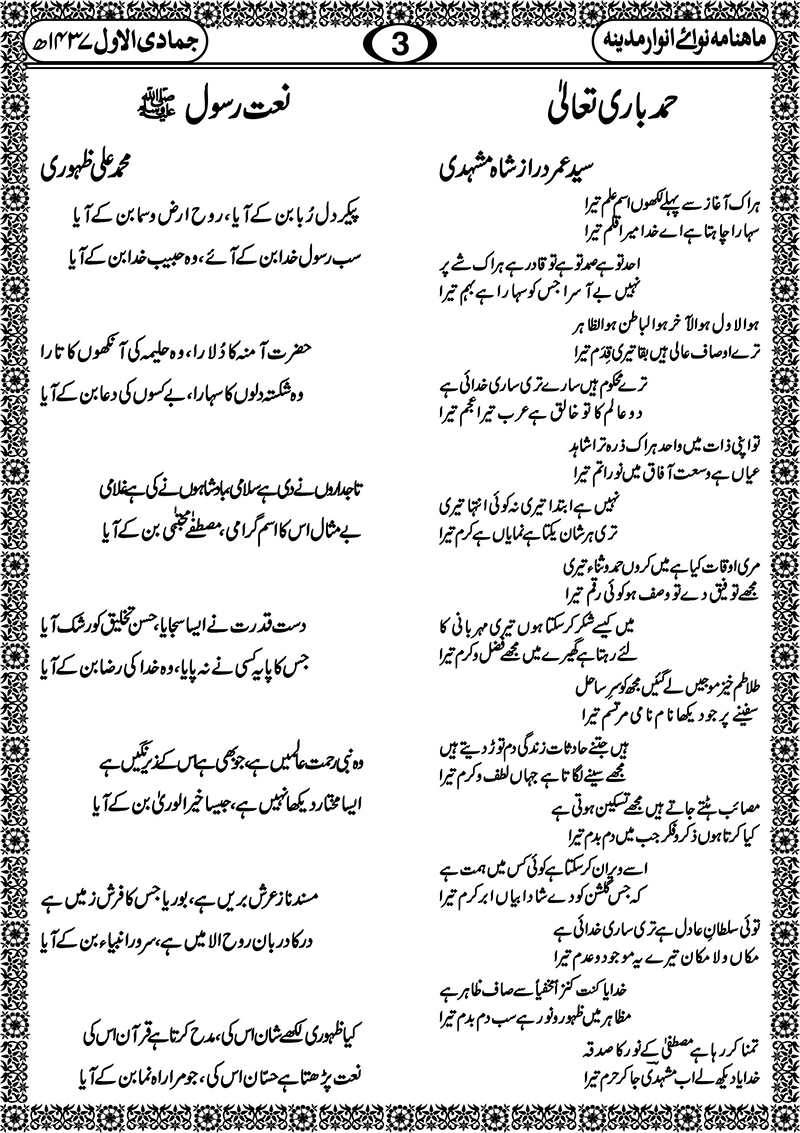 ماہنامہ نوائے انوار مدینہ
3
جمادی الاول ۱۴۳۷ھ
حمد باری تعالیٰ
سید عمر دراز شاہ مشہدی
ہر اک آغاز سے پہلے لکھوں اسم علم تیرا
سہارا چاہتا ہے اے خدا میرا قلم تیرا
احد تو ہے صمد تو ہے تو قادر ہے ہر اک شے پر
نہیں بے آسرا جس کو سہارا ہے بہم تیرا
ہوالاول ہوالآخر ہوالباطن ہوالظاہر
ترے اوصاف عالی ہیں بقا تیری قِدَم تیرا
ترے محکوم ہیں سارے تری ساری خدائی ہے
دو عالم کا تو خالق ہے عرب تیرا عجم تیرا
تو اپنی ذات میں واحد ہر اک ذرہ ترا شاہد
عیاں ہے وسعت آفاق میں نور اتم تیرا
نہیں ہے ابتدا تیری نہ کوئی انتہا تیری
تری ہر شان یکتا ہے نمایاں ہے کرم تیرا
مری اوقات کیا ہے میں کروں حمد و ثناء تیری
مجھے توفیق دے تو وصف ہو کوئی رقم تیرا
میں کیسے شکر کر سکتا ہوں تیری مہربانی کا
لئے رہتا ہے گھیرے میں مجھے فضل و کرم تیرا
طلاطم خیز موجیں لے گئیں مجھ کو سرِ ساحل
سفینے پر جو دیکھا نام نامی مرتسم تیرا
ہیں جتنے حادثات زندگی دم توڑ دیتے ہیں
مجھے سینے لگاتا ہے جہاں لطف و کرم تیرا
مصائب ہٹتے جاتے ہیں مجھے تسکین ہوتی ہے
کیا کرتا ہوں ذکر و فکر جب میں دم بدم تیرا
اسے ویران کر سکتا ہے کوئی کس میں ہمت ہے
کہ جس گلشن کو دے شادابیاں ابر کرم تیرا
توئی سلطانِ عادل ہے تری ساری خدائی ہے
مکاں و لا مکان تیرے یہ موجود و عدم تیرا
خدایا کنت کنزاً مخفیاً سے صاف ظاہر ہے
مظاہر میں ظہور و نور ہے سب دم بدم تیرا
تمنا کر رہا ہے مصطفیٰ کے نور کا صدقہ
خدایا دیکھ لے اب مشہدی جا کر حرم تیرا
نعت رسول ﷺ
محمد علی ظہوری
پیکر دل رُبا بن کے آیا، روح ارض و سما بن کے آیا
سب رسول خدا بن کے آئے، وہ حبیب خدا بن کے آیا
حضرت آمنہ کا دُلارا، وہ حلیمہ کی آنکھوں کا تارا
وہ شکستہ دلوں کا سہارا، بے کسوں کی دعا بن کے آیا
تاجداروں نے دی ہے سلامی، بادشاہوں نے کی ہے غلامی
بے مثال اس کا اسم گرامی، مصطفےٰ مجتبیٰ بن کے آیا
دست قدرت نے ایسا سجایا، حسن تخلیق کو رشک آیا
جس کا پایہ کسی نے نہ پایا، وہ خدا کی رضا بن کے آیا
وہ نبی رحمت عالمیں ہے، جو بھی ہے اس کے زیرِ نگیں ہے
ایسا مختار دیکھا نہیں ہے، جیسا خیر الوریٰ بن کے آیا
مسند ناز عرش بریں ہے، بوریا جس کا فرش زمیں ہے
در کا دربان روح الامیں ہے، سرور انبیاء بن کے آیا
کیا ظہوری لکھے شان اس کی، مدح کرتا ہے قرآن اس کی
نعت پڑھتا ہے حسّان اس کی، جو مرا راہ نما بن کے آیا